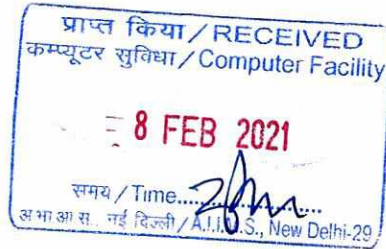 प्राप्त किया / RECEIVED
कम्प्यूटर सुविधा / Computer Facility
8 FEB 2021
समय / Time....................
अ भा आ स., नई दिल्ली / A.I.I.M.S., New Delhi-29